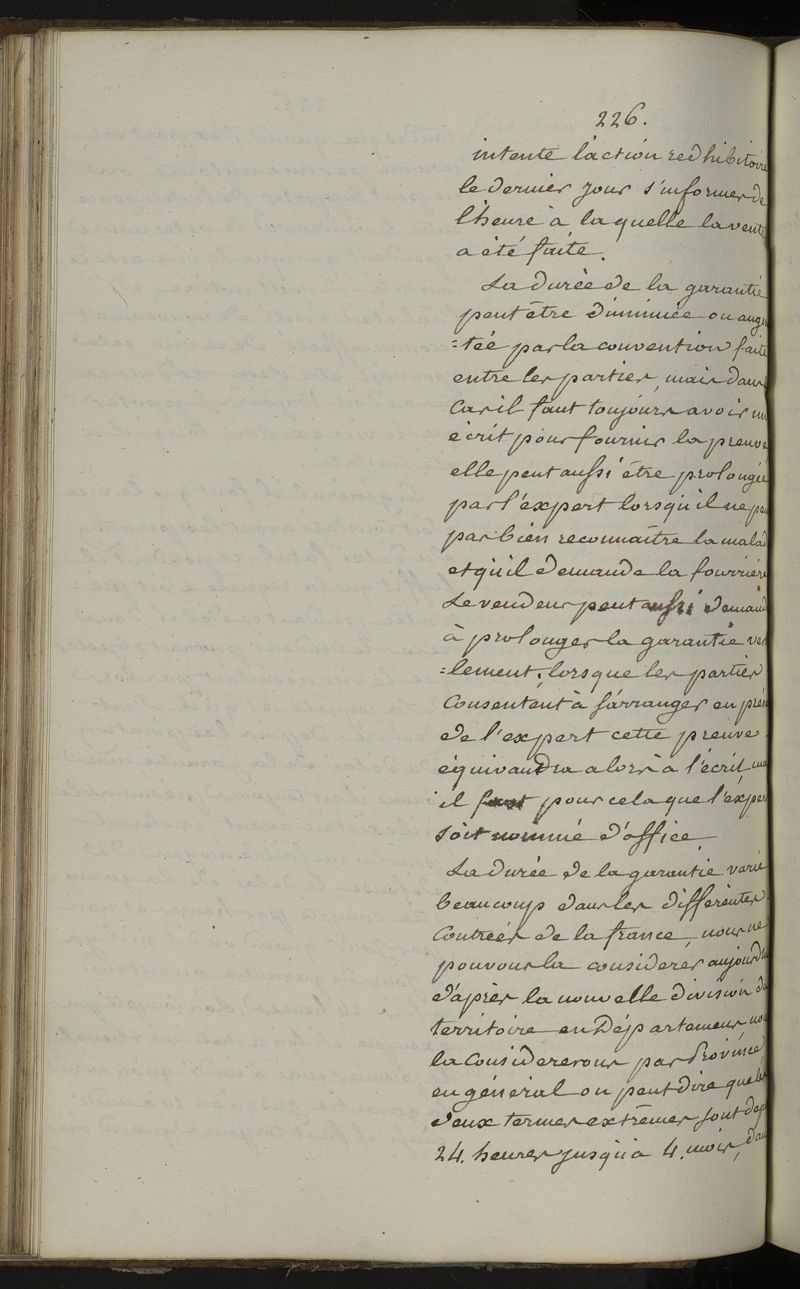 226.
intente l'action redhibitoire
le dernier jour s'informer de
l'heure à laquelle la vente
a été faite.
La durée de la garantie
peut être diminuée ou aug
=tée par la convention faite
entre les parties, mais dans
Cas il faut toujours avoir un
écrit pour fournir la preuve
elle peut aussi être prolongée
par l'expert lorsqu'il ne peu
pas bien reconnaître la malad
et qu'il demande la fourrière
Le vendeur peut aussi demand
à prolonger la garantie ver
=lement, lorsque les parties
Consentent à s'arranger en prés
de l'expert cette preuve
équivaudra alors à l'écrit, mai
il faut pour cela que l'exper
soit nommé d'office
La durée de la garantie varie
beaucoup dans les différentes
Contrées de la france, nous ne
pouvons la considerér aujourd'hui
d'après la nouvelle division du
territoire en Départemens, nou
la Considererons par Province,
en général on peut dire que les
deux termes extrêmes sont dep
24. heures jusqu'à 4. mois, dan